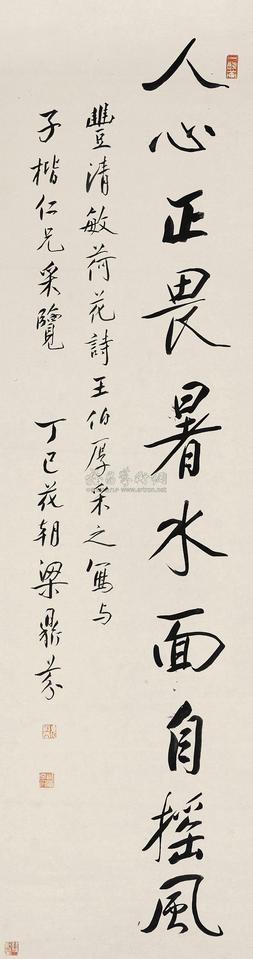 人心正畏暑水面自搖風
豐清敏荷花詩王伯厚采之寫与
子楷仁兄采覽　丁巳花朝梁鼎芬